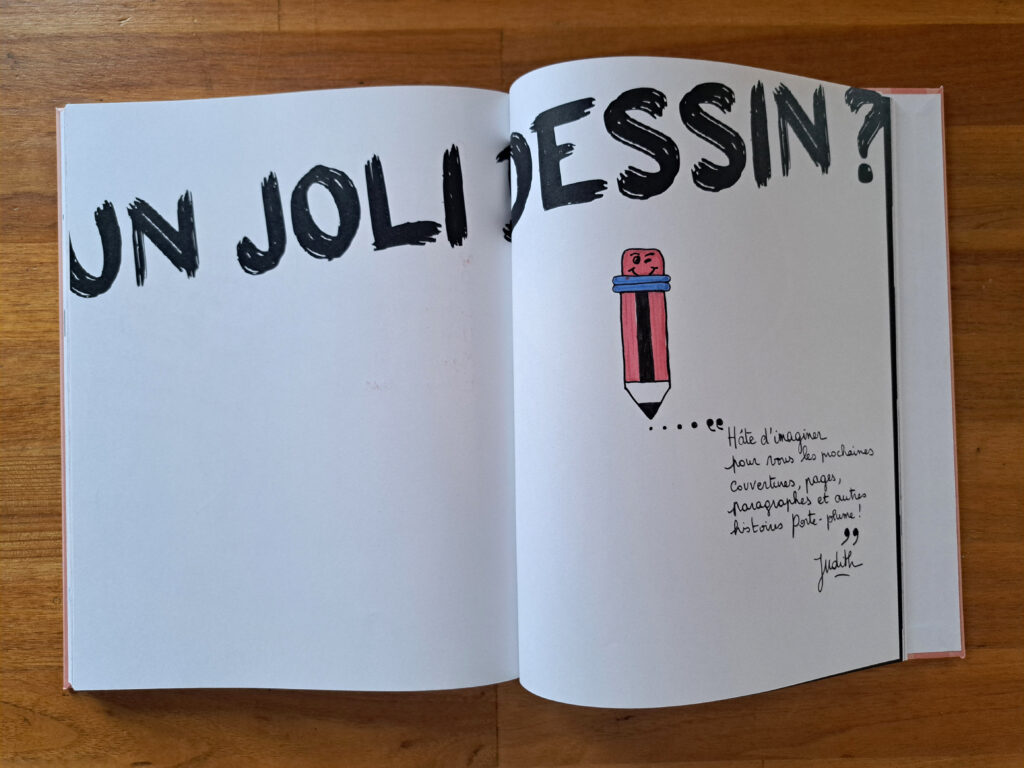 UN JOLI DESSIN ?
Hâte d'imaginer
pour vous les prochaines
couvertures, pages,
paragraphes et autres
histoires Porte-plume !
Judith